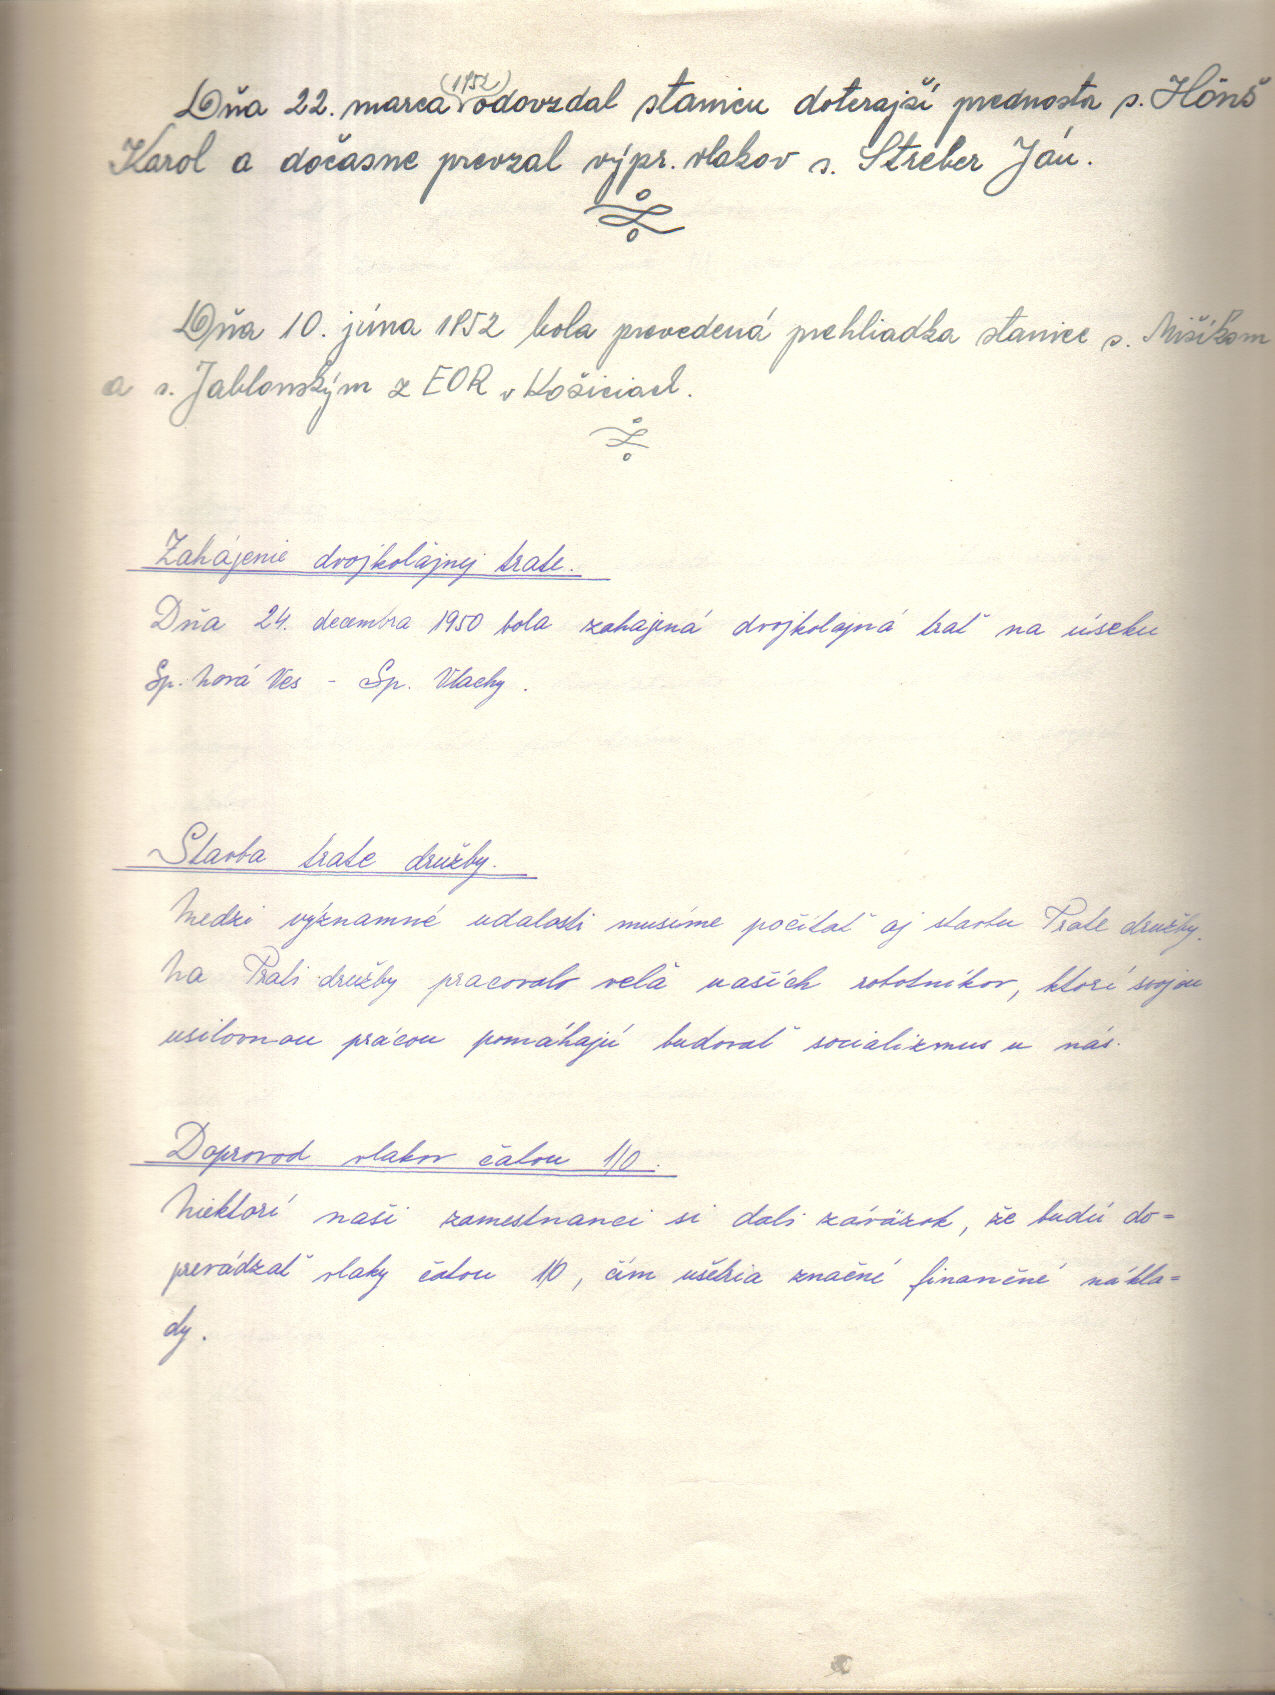 Dňa 22. marca (1952) odovzdal stanicu doterajší prednosta s. Hönš
Karol a dočasne prevzal výpr. vlakov s. Streber Ján.
Dňa 10. júna 1952 bola prevedená prehliadka stanice s. Mišíkom
a s. Jablonským z EOR v Košiciach.
Zahájenie dvojkolajnej trate.
Dňa 24. decembra 1950 bola zahajená dvojkolajná trať na úseku
Sp. Nová Ves - Sp. Vlachy.
Stavba trate družby.
Medzi významné udalosti musíme počítať aj stavbu Trate družby.
Na Trati družby pracovalo veľa našich robotníkov, ktorí svojou
usilovnou prácou pomáhajú budovať socializmus u nás.
Doprovod vlakov čatou 1/0.
Niektorí naši zamestnanci si dali záväzok, že budú do=
prevádzať vlaky čatou 1/0, čím ušetria značné finančné nákla=
dy.